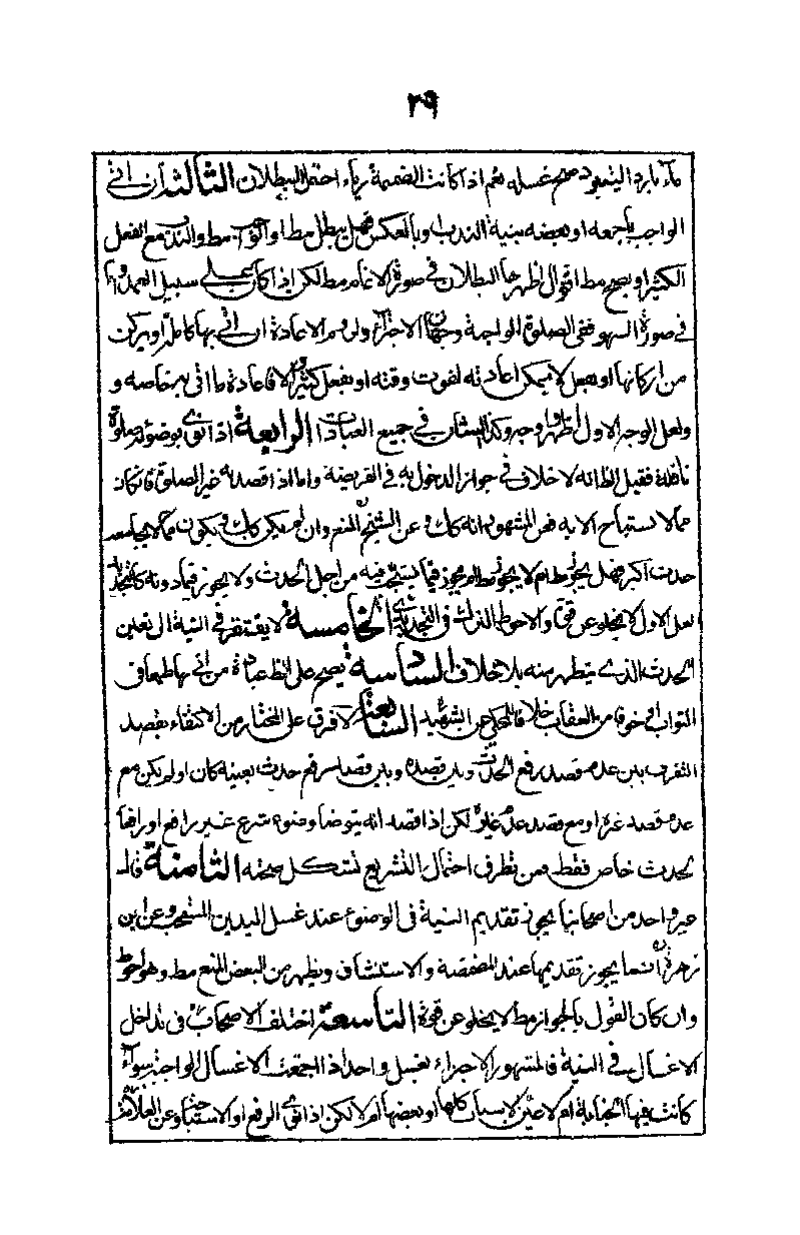 ٢٩
ماء بارد اليتعود صح غسله نعم اذا كانت الضميمة رياء احتمل البطلان الثالثة ان اتى
الواجب باجمعه او بعضه بنية الندب او بالعكس فهل يبطل مط او الواجب مط والندب مع الفعل
الكثير او يصح مط اقوال اظهرها البطلان في صورة الاتمام مط لكن اذا كان على سبيل العمد واما
في صورة السهو ففى الصلوة الواجبة وجهان الاجزاء ولزوم الاعادة ان اتى بها كاملا او بركن
من اركانها او بفعل لا يمكن اعادته لفوت وقته او بفعل كثير والا فاعادة ما اتى به خاصه و
ولعل الوجه الاول اظهر واوجه وكذا الشان في جميع العبادات الرابعة اذا نوى بوضوئه صلوة
نافلة فقيل الظ انه لا خلاف في جواز الدخول به في الفريضه واما اذا قصد به غير الصلوة فان كان
مما لا يستباح الا به فعن المشهور انه كك وعن الشيخ المنع وان لم يكن كك ويكون مما لا يجامعه
حدث اكبر فهل يجوز مط ام لا يجوز مط ام يجوز فيما يستحب فيه من اجل الحدث ولا يجوز فيما دونه كالتجديد
لعل الاول لا يخلو عن قوة والاحوط الترك في التجديدى الخامسة لا يفتقر في النية الى تعيين
الحدث الذى يتطهر منه بلا خلاف السادسة يصح على الظ عبادة من اتى بها طمعا في
الثواب او خوفا من العقاب خلافا للمحكى عن الشهيد السابعة لا فرق على المختار من الاكتفاء بقصد
التقرب بين عدم قصد رفع الحدث وبين قصده وبين قصد رفع حدث بعينه كان او لم يكن مع
عدم قصد غيره او مع قصد عدم غيره لكن اذا قصد انه يتوضأ وضوء شرع غير رافع او رافعا
لحدث خاص فقط فمن تطرق احتمال التشريع تستشكل صحته الثامنة قال
غير واحد من اصحابنا يجوز تقديم النية في الوضوء عند غسل اليدين المستحب وعن ابن
زهرة انه يجوز تقديمها عند المضمضة والاستنشاق ويظهر من البعض المنع مط وهو احوط
وان كان القول بالجواز مط لا يخلو عن قوة التاسعة اختلف الاصحاب في تداخل
الاغسال في النية فالمشهور الاجزاء بغسل واحد اذا اجتمعت الاغسال الواجبة سواء
كانت فيها الجنابة ام لا عين الاسباب كلها او بعضها ام لا لكن اذا نوى الرفع او الاستباحة وعن العلامة